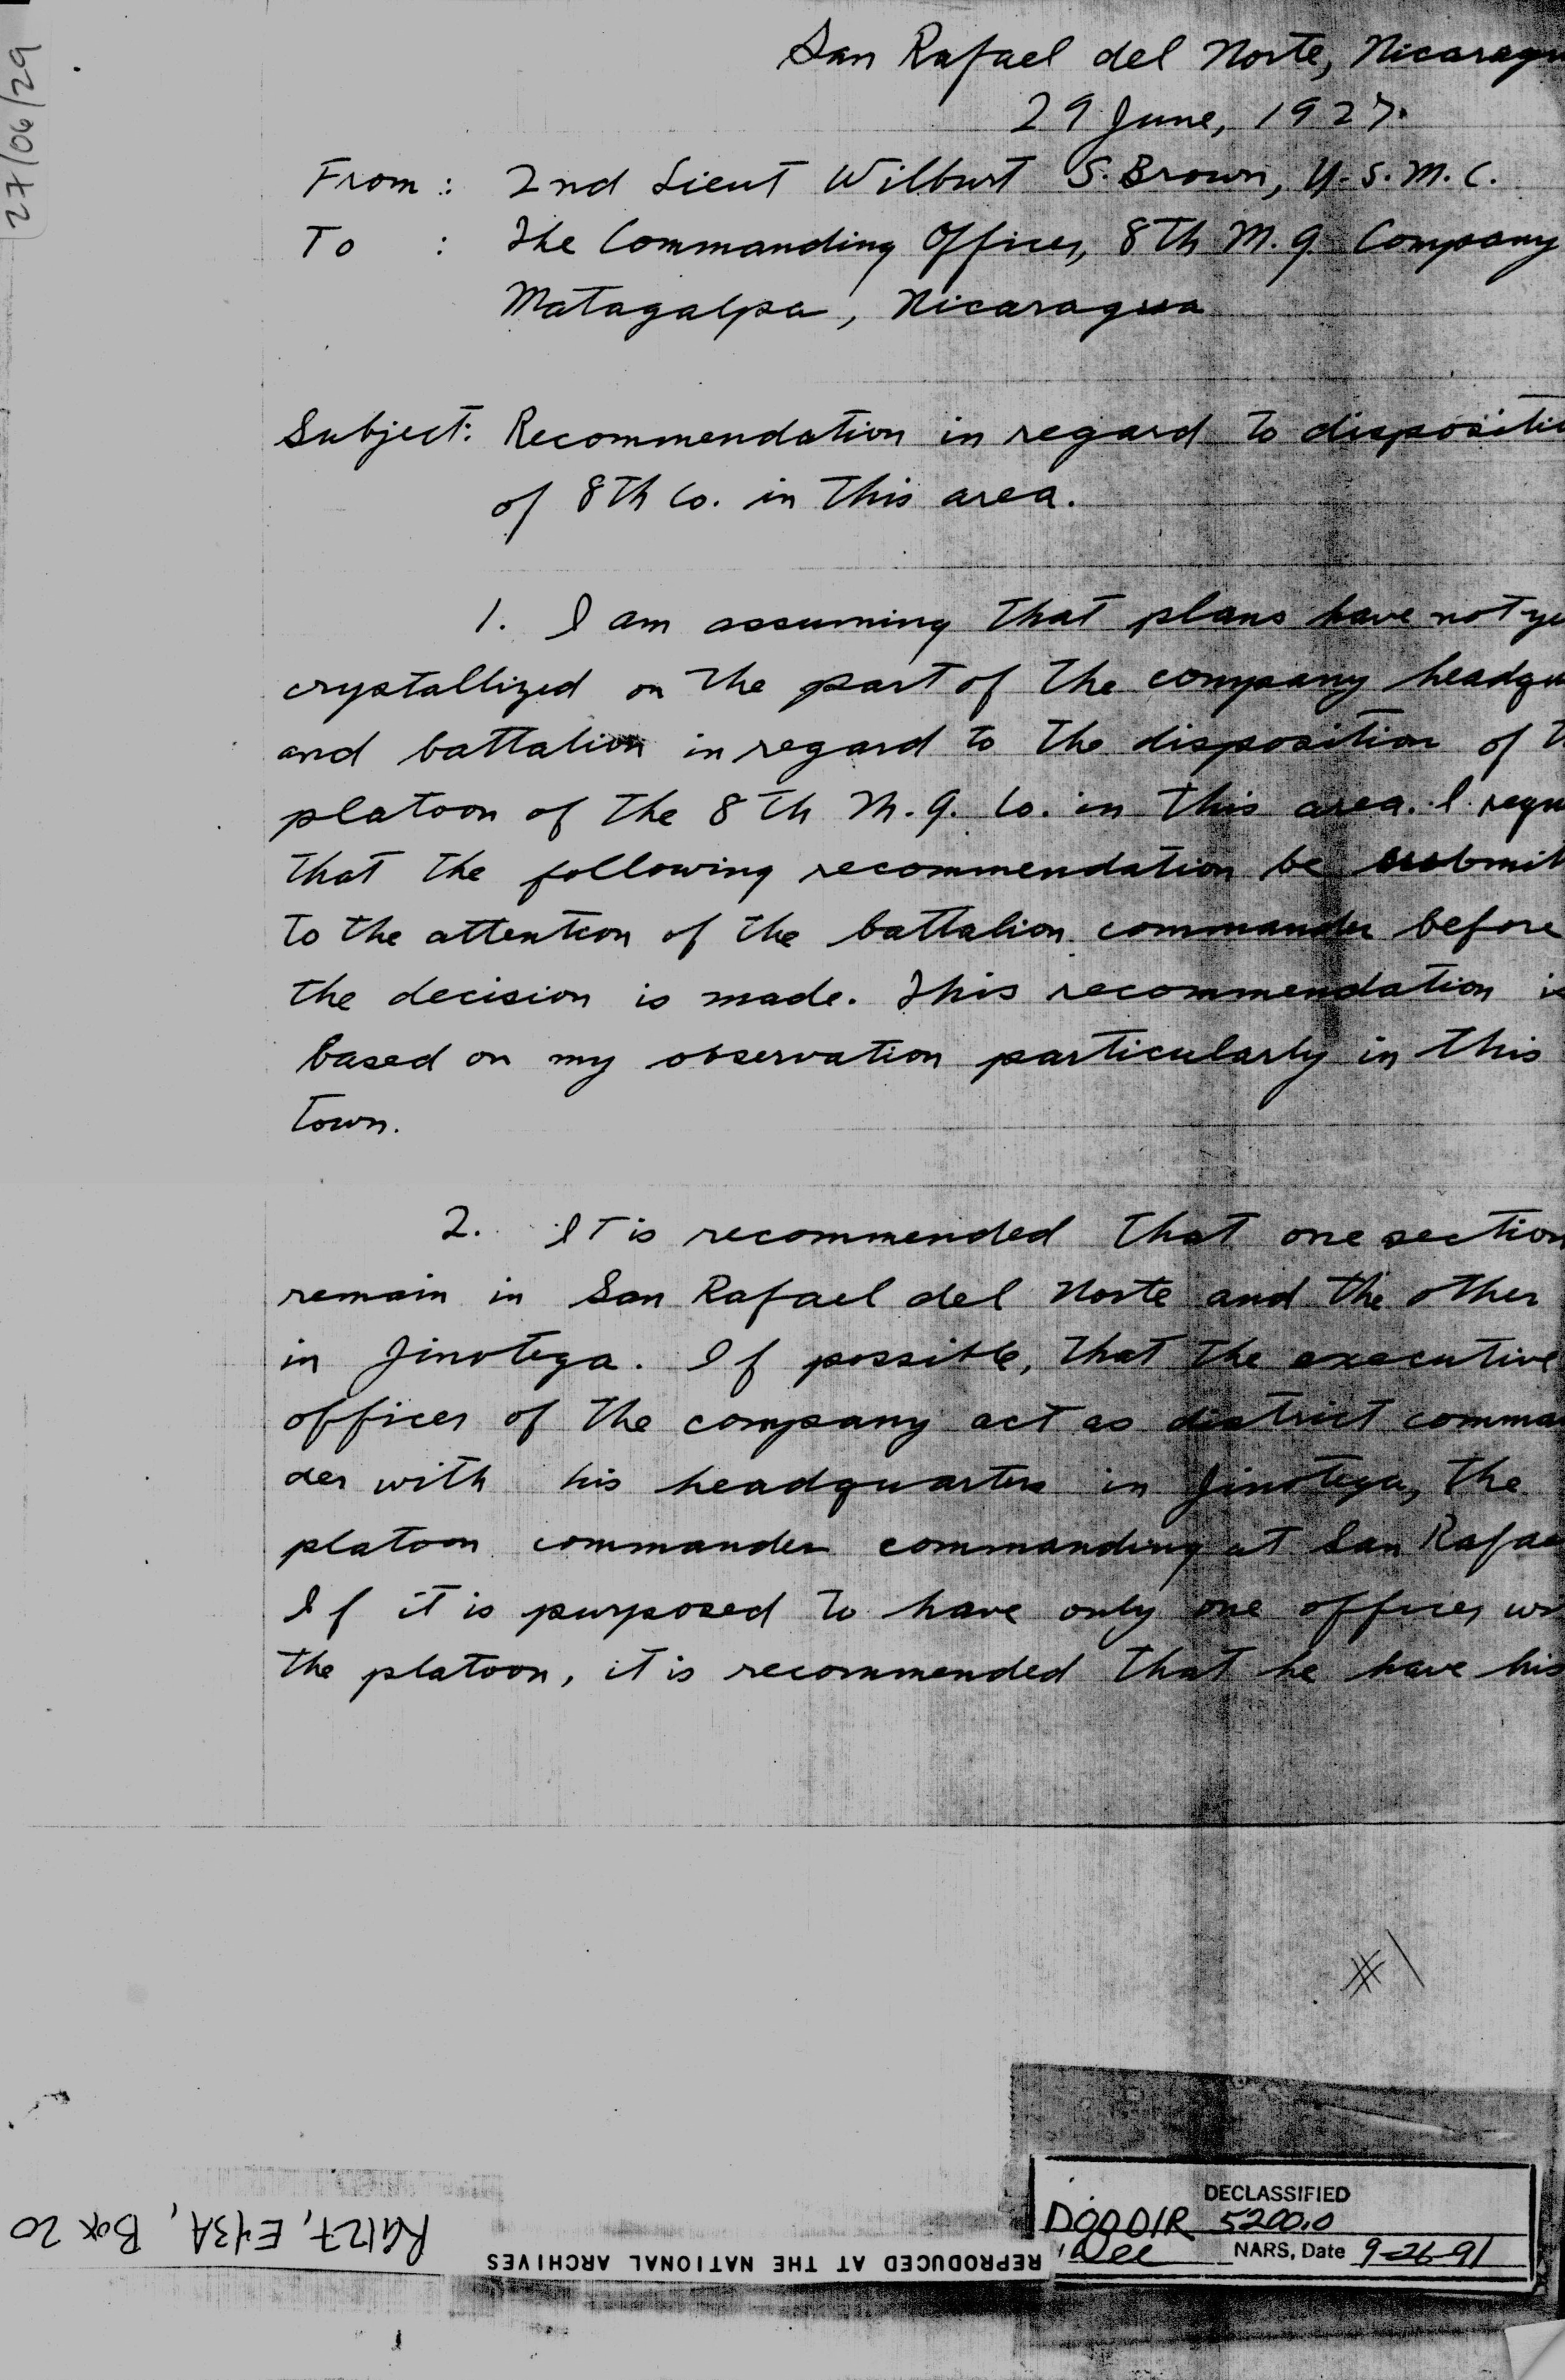 27/06/29
San Rafael del Norte, Nicaragu
29 June, 1927.
From : 2nd Lieut Wilburt S. Brown, U.S.M.C.
To : The Commanding Officer, 8th M.G. Company
Matagalpa, Nicaragua
Subject: Recommendation in regard to dispositio
of 8th Co. in this area.
1. I am assuming that plans have not ye
crystallized on the part of the company headqu
and battalion in regard to the disposition of t
platoon of the 8th M.G. Co. in this area. I requ
that the following recommendation be submit
to the attention of the battalion commander before
the decision is made. This recommendation is
based on my observation particularly in this
town.
2. It is recommended that one section
remain in San Rafael del Norte and the other
in Jinotega. If possible, that the executive
officer of the company act as district comman
der with his headquarters in Jinotega, the
platoon commander commanding at San Rafae
If it is purposed to have only one officer wi
the platoon, it is recommended that he have his
#1
DECLASSIFIED
DOD DIR 5200.0
NARS, Date 9-26-91
REPRODUCED AT THE NATIONAL ARCHIVES
RG127, E43A, Box 20